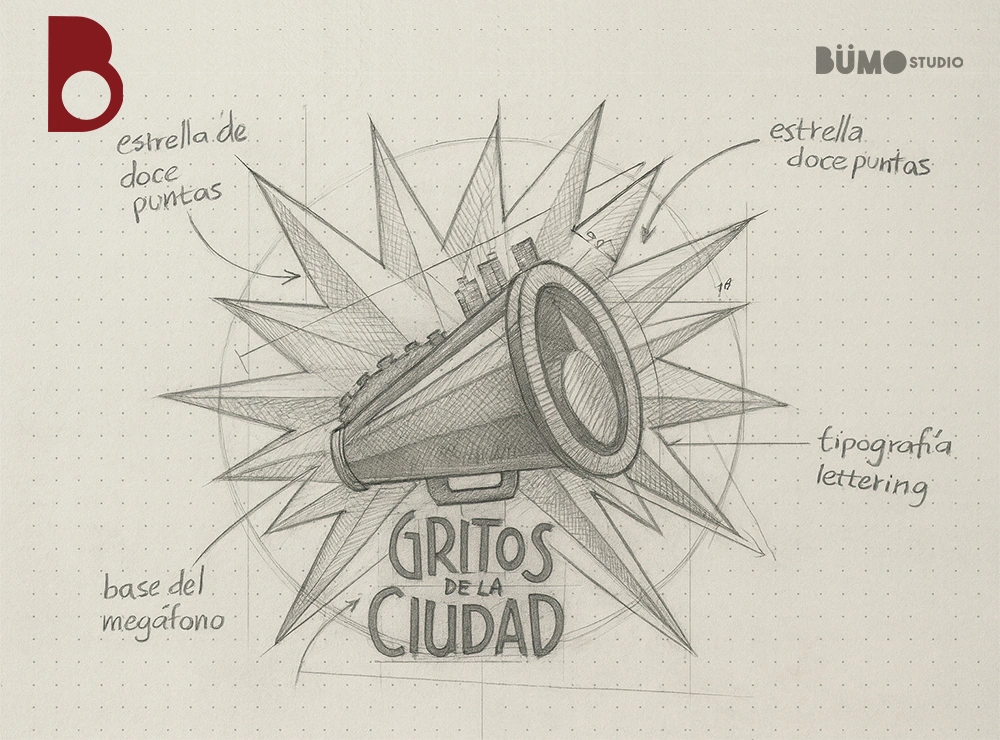 B
BÜMO STUDIO
estrella de
doce
puntas
estrella
doce puntas
tipografía
lettering
base del
megáfono
GRITOS
DE LA
CIUDAD